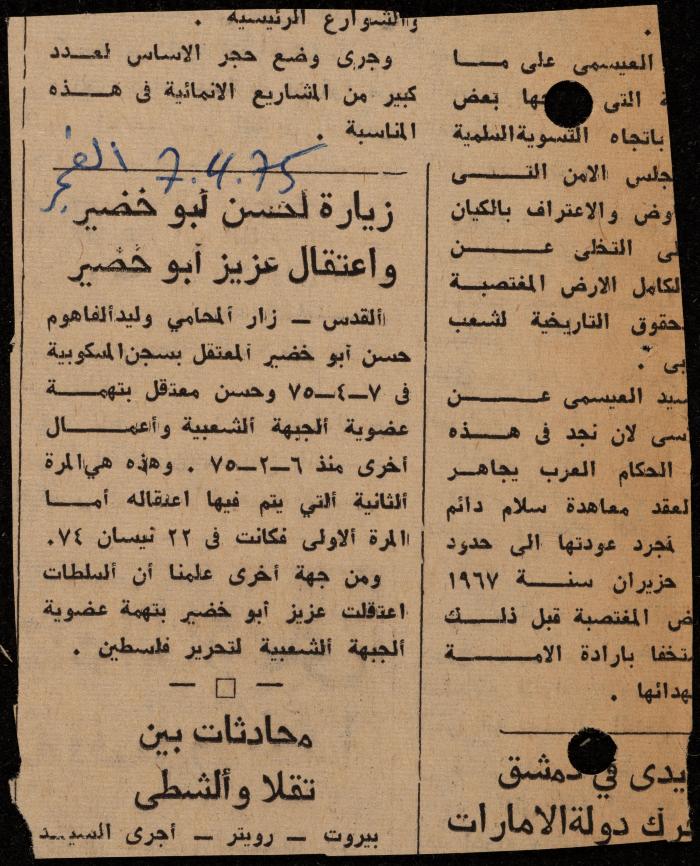 والشوارع الرئيسية .
وجرى وضع حجر الاساس لعدد
كبير من المشاريع الانمائية فى هذه
المناسبة .
7.4.75 الفجر
زيارة لحسن أبو خضير
واعتقال عزيز أبو خضير
القدس – زار المحامي وليد الفاهوم
حسن أبو خضير المعتقل بسجن المسكوبية
فى ٧–٤–٧٥ وحسن معتقل بتهمة
عضوية الجبهة الشعبية وأعمال
أخرى منذ ٦–٢–٧٥ . وهذه هي المرة
الثانية التي يتم فيها اعتقاله أما
المرة الاولى فكانت فى ٢٢ نيسان ٧٤.
ومن جهة أخرى علمنا أن السلطات
اعتقلت عزيز أبو خضير بتهمة عضوية
الجبهة الشعبية لتحرير فلسطين .
محادثات بين
تقلا والشطى
بيروت – رويتر – أجرى السيد
العيسمى على ما
التى بعض
باتجاه التسوية السلمية
جلس الامن التى
وض والاعتراف بالكيان
التخلى عن
لكامل الارض المغتصبة
حقوق التاريخية لشعب
بى .
سيد العيسمى عن
سى لان نجد فى هذه
الحكام العرب يجاهر
لعقد معاهدة سلام دائم
لمجرد عودتها الى حدود
حزيران سنة ١٩٦٧
ض المغتصبة قبل ذلك
ستخفا بارادة الامة
هدائها .
يدى في دمشق
رك دولة الامارات